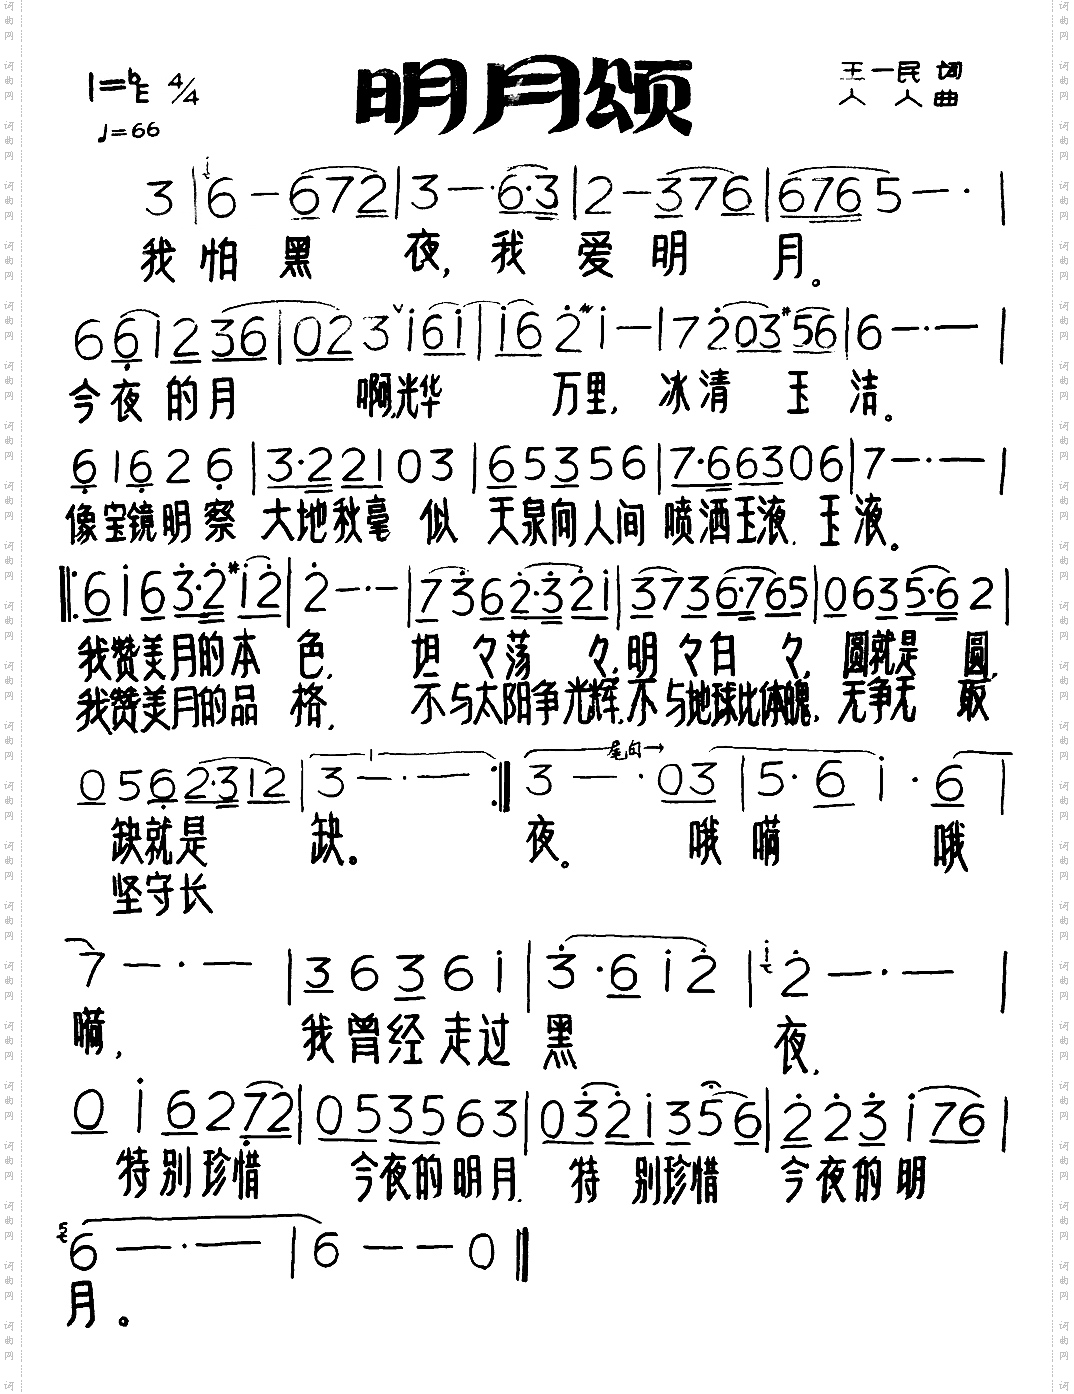 1=♭E 4/4 明月颂 王一民 词
♩=66 人 人 曲
3 | 6 — 6 7 2 | 3 — · 6 · 3 | 2 — 3 7 6 | 6 7 6 5 — · |
我 怕 黑 夜, 我 爱 明 月。
6 6 1 2 3 6 | 0 2 3 i 6 i | i 6 2 #i — | 7 2 0 3 #5 6 | 6 — · — |
今 夜 的 月 啊,光 华 万 里, 冰 清 玉 洁。
6 1 6 2 6 | 3 · 2 2 1 0 3 | 6 5 3 5 6 | 7 · 6 6 3 0 6 | 7 — · — |
像 宝 镜 明 察 大 地 秋 毫 似 天 泉 向 人 间 喷 洒 玉 液. 玉 液。
‖: 6 i 6 3 · 2 #i 2 | 2 — · — | 7 3 6 2 · 3 2 i | 3 7 3 6 · 7 6 5 | 0 6 3 5 · 6 2 |
我 赞 美 月 的 本 色, 坦 々 荡 々, 明 々 白 々, 圆 就 是 圆,
我 赞 美 月 的 品 格, 不 与 太 阳 争 光 辉, 不 与 地 球 比 体 魄, 无 争 无 敢
0 5 6 2 · 3 1 2 | 3 — · — :‖ 3 — · 0 3 | 5 · 6 i · 6 |
1 尾句→
缺 就 是 缺。 夜。 哦 嗬 哦
坚 守 长
7 — · — | 3 6 3 6 i | 3 · 6 i 2 | 2 — · — |
嗬, 我 曾 经 走 过 黑 夜,
0 i 6 2 7 2 | 0 5 3 5 6 3 | 0 3 2 i 3 5 6 | 2 2 3 i 7 6 |
特 别 珍 惜 今 夜 的 明 月. 特 别 珍 惜 今 夜 的 明
6 — · — | 6 — — 0 ‖
月 。
词曲网